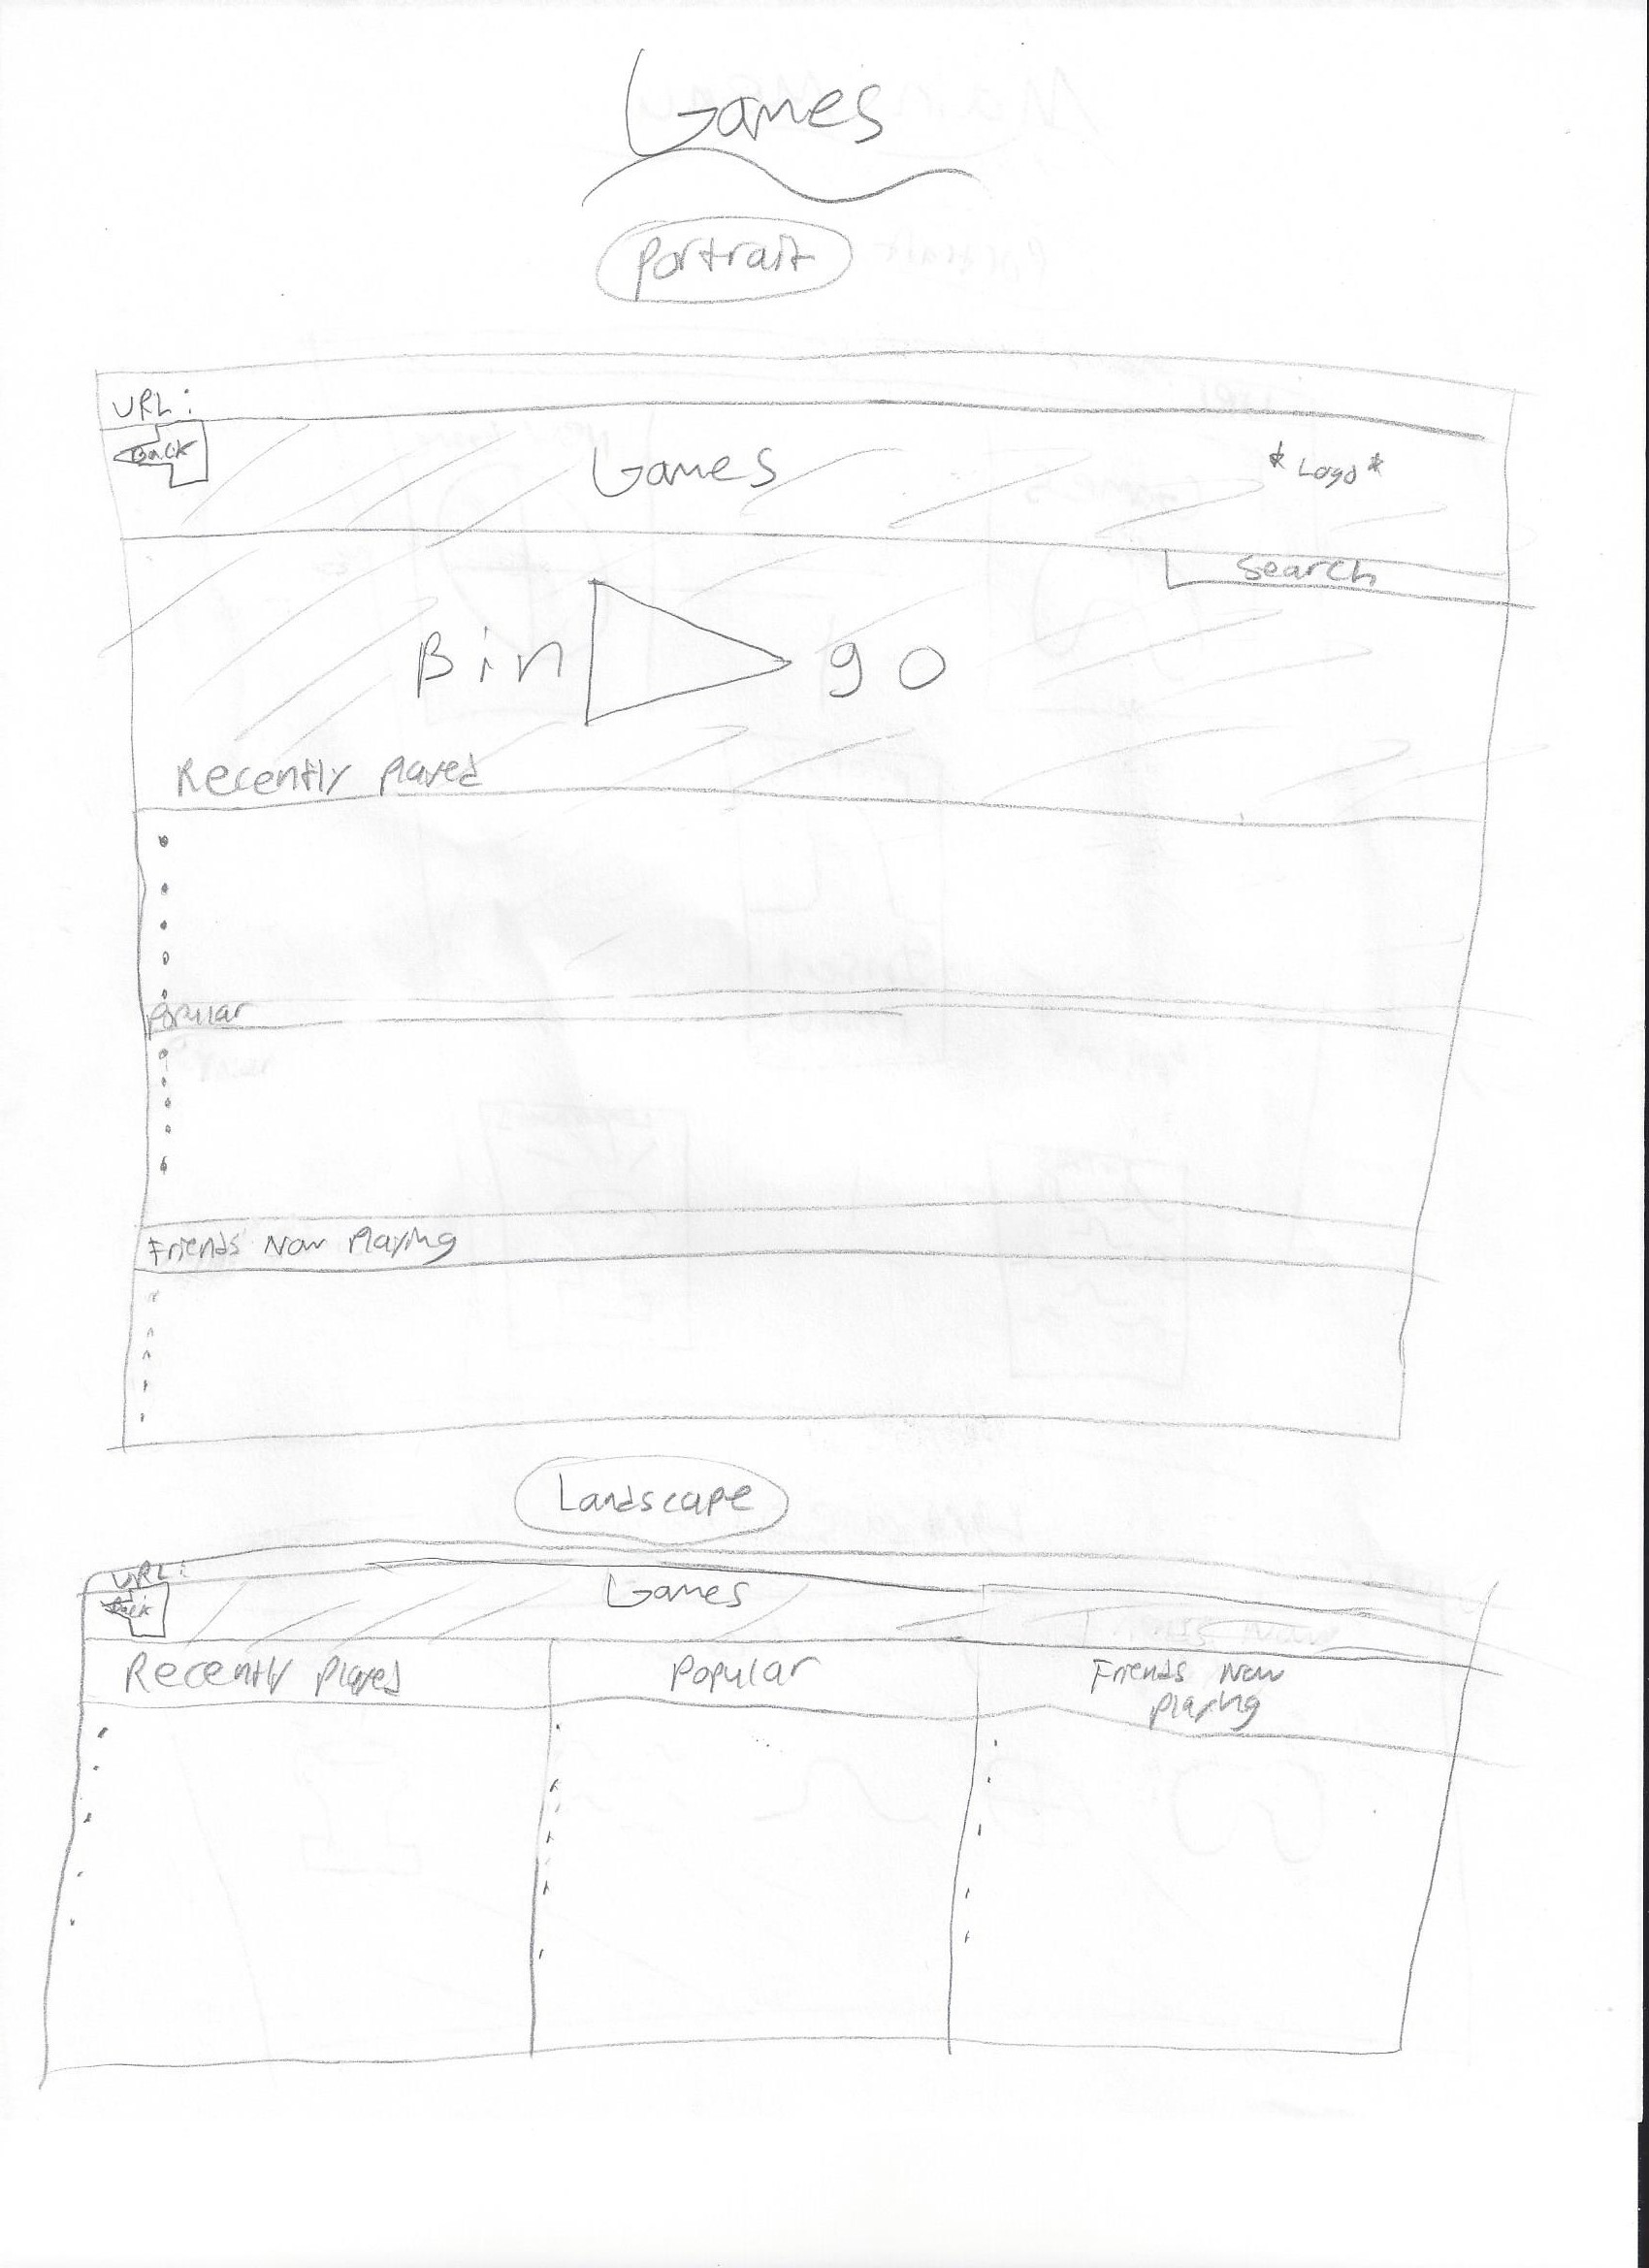 Games
Portrait
URL:
Back
Games
* Logo *
Search
Bin go
Recently Played
Popular
Friends Now Playing
Landscape
URL:
Back
Games
Recently Played
Popular
Friends Now
Playing